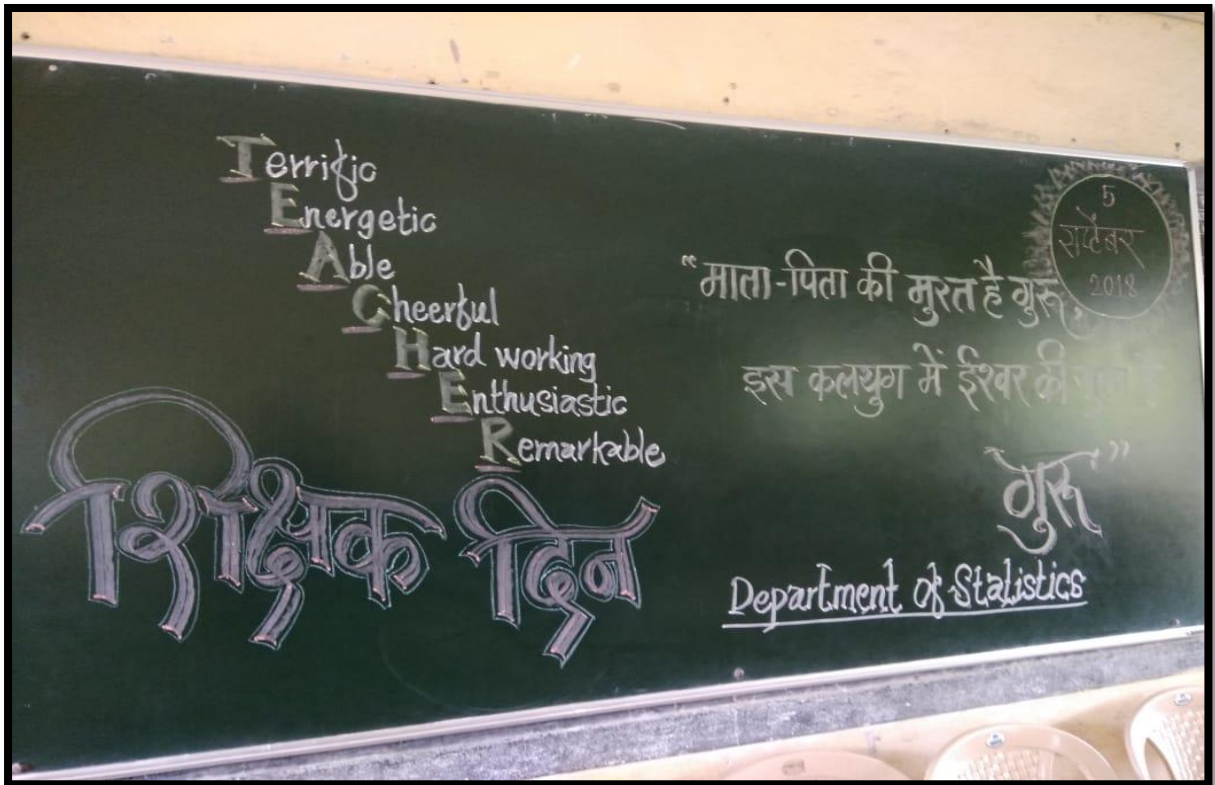 Terrific
Energetic
Able
Cheerful
Hard working
Enthusiastic
Remarkable
शिक्षक दिन
5
सप्टेंबर
2018
“माता-पिता की मुरत है गुरू,
इस कलयुग में ईश्वर की
गुरू”
Department of Statistics